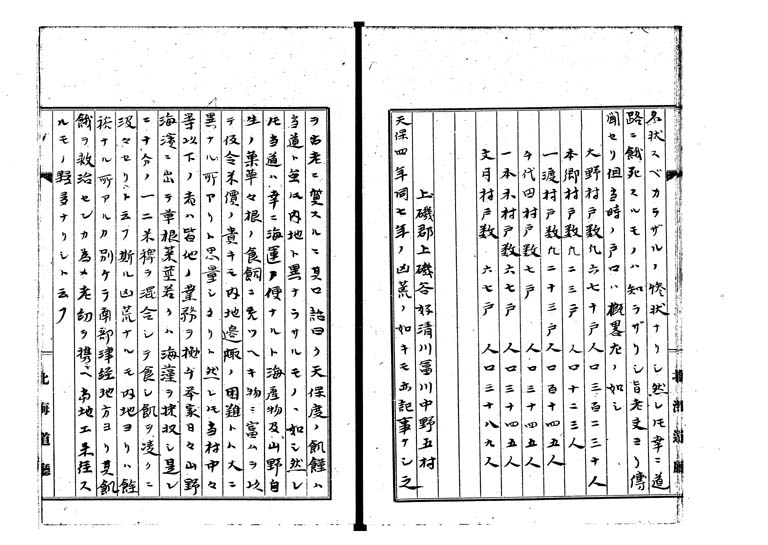 名状スベカラザルノ惨状ナリシ然レ𪜈幸ニ道
路ニ餓死スルモノハ知ラザリシ旨老丈ヨリ傳
聞セリ但当時ノ戸口ハ概畧左ノ如シ
大野村戸数凡六七十戸人口三百二三十人
本郷村戸数凡二三戸　人口十二三人
一渡村戸数凡二十三戸　人口百十四五人
千代田村戸数七戸　人口三十四五人
一本木村戸数六七戸　人口三十四五人
文月村戸数　六七戸　人口三十八九人
上磯郡上磯谷好清川冨川中野五村
天保四年同七年ノ凶荒ノ如キモ亦記事ナシ之
ヲ古老ニ質スルニ其口話曰ク天保度ノ飢饉ハ
当道ト並ニ内地ト異ナラサルモノヽ如シ然レ
𪜈当道ハ幸ニ海運ノ便ナルト海産物及山野自
生ノ菓草々根ノ食餌ニ充ツヘキ物ニ富ムヲ以
テ仮令米價ノ貴キモ内地邊陬ノ困難トハ大ニ
異ナル所アリト思量シタリト然レ𪜈当村中々
等以下ノ者ハ皆地ノ業務ヲ抛ケ挙家日々山野
海濱ニ出テ草根菜莖若クハ海藻ヲ採収シ是レ
ニ十分ノ一二米稗ヲ混合シテ食シ飢ヲ凌クニ
汲々セリト云フ斯ル凶荒ナルモ内地ヨリハ餘
裕ナル所アルカ別ケテ南部津軽地方ヨリ其飢
餓ヲ救治センカ為メ老幼ヲ携ヘ当地エ来往ス
ルモノ夥多ナリシト云フ
北海道廳